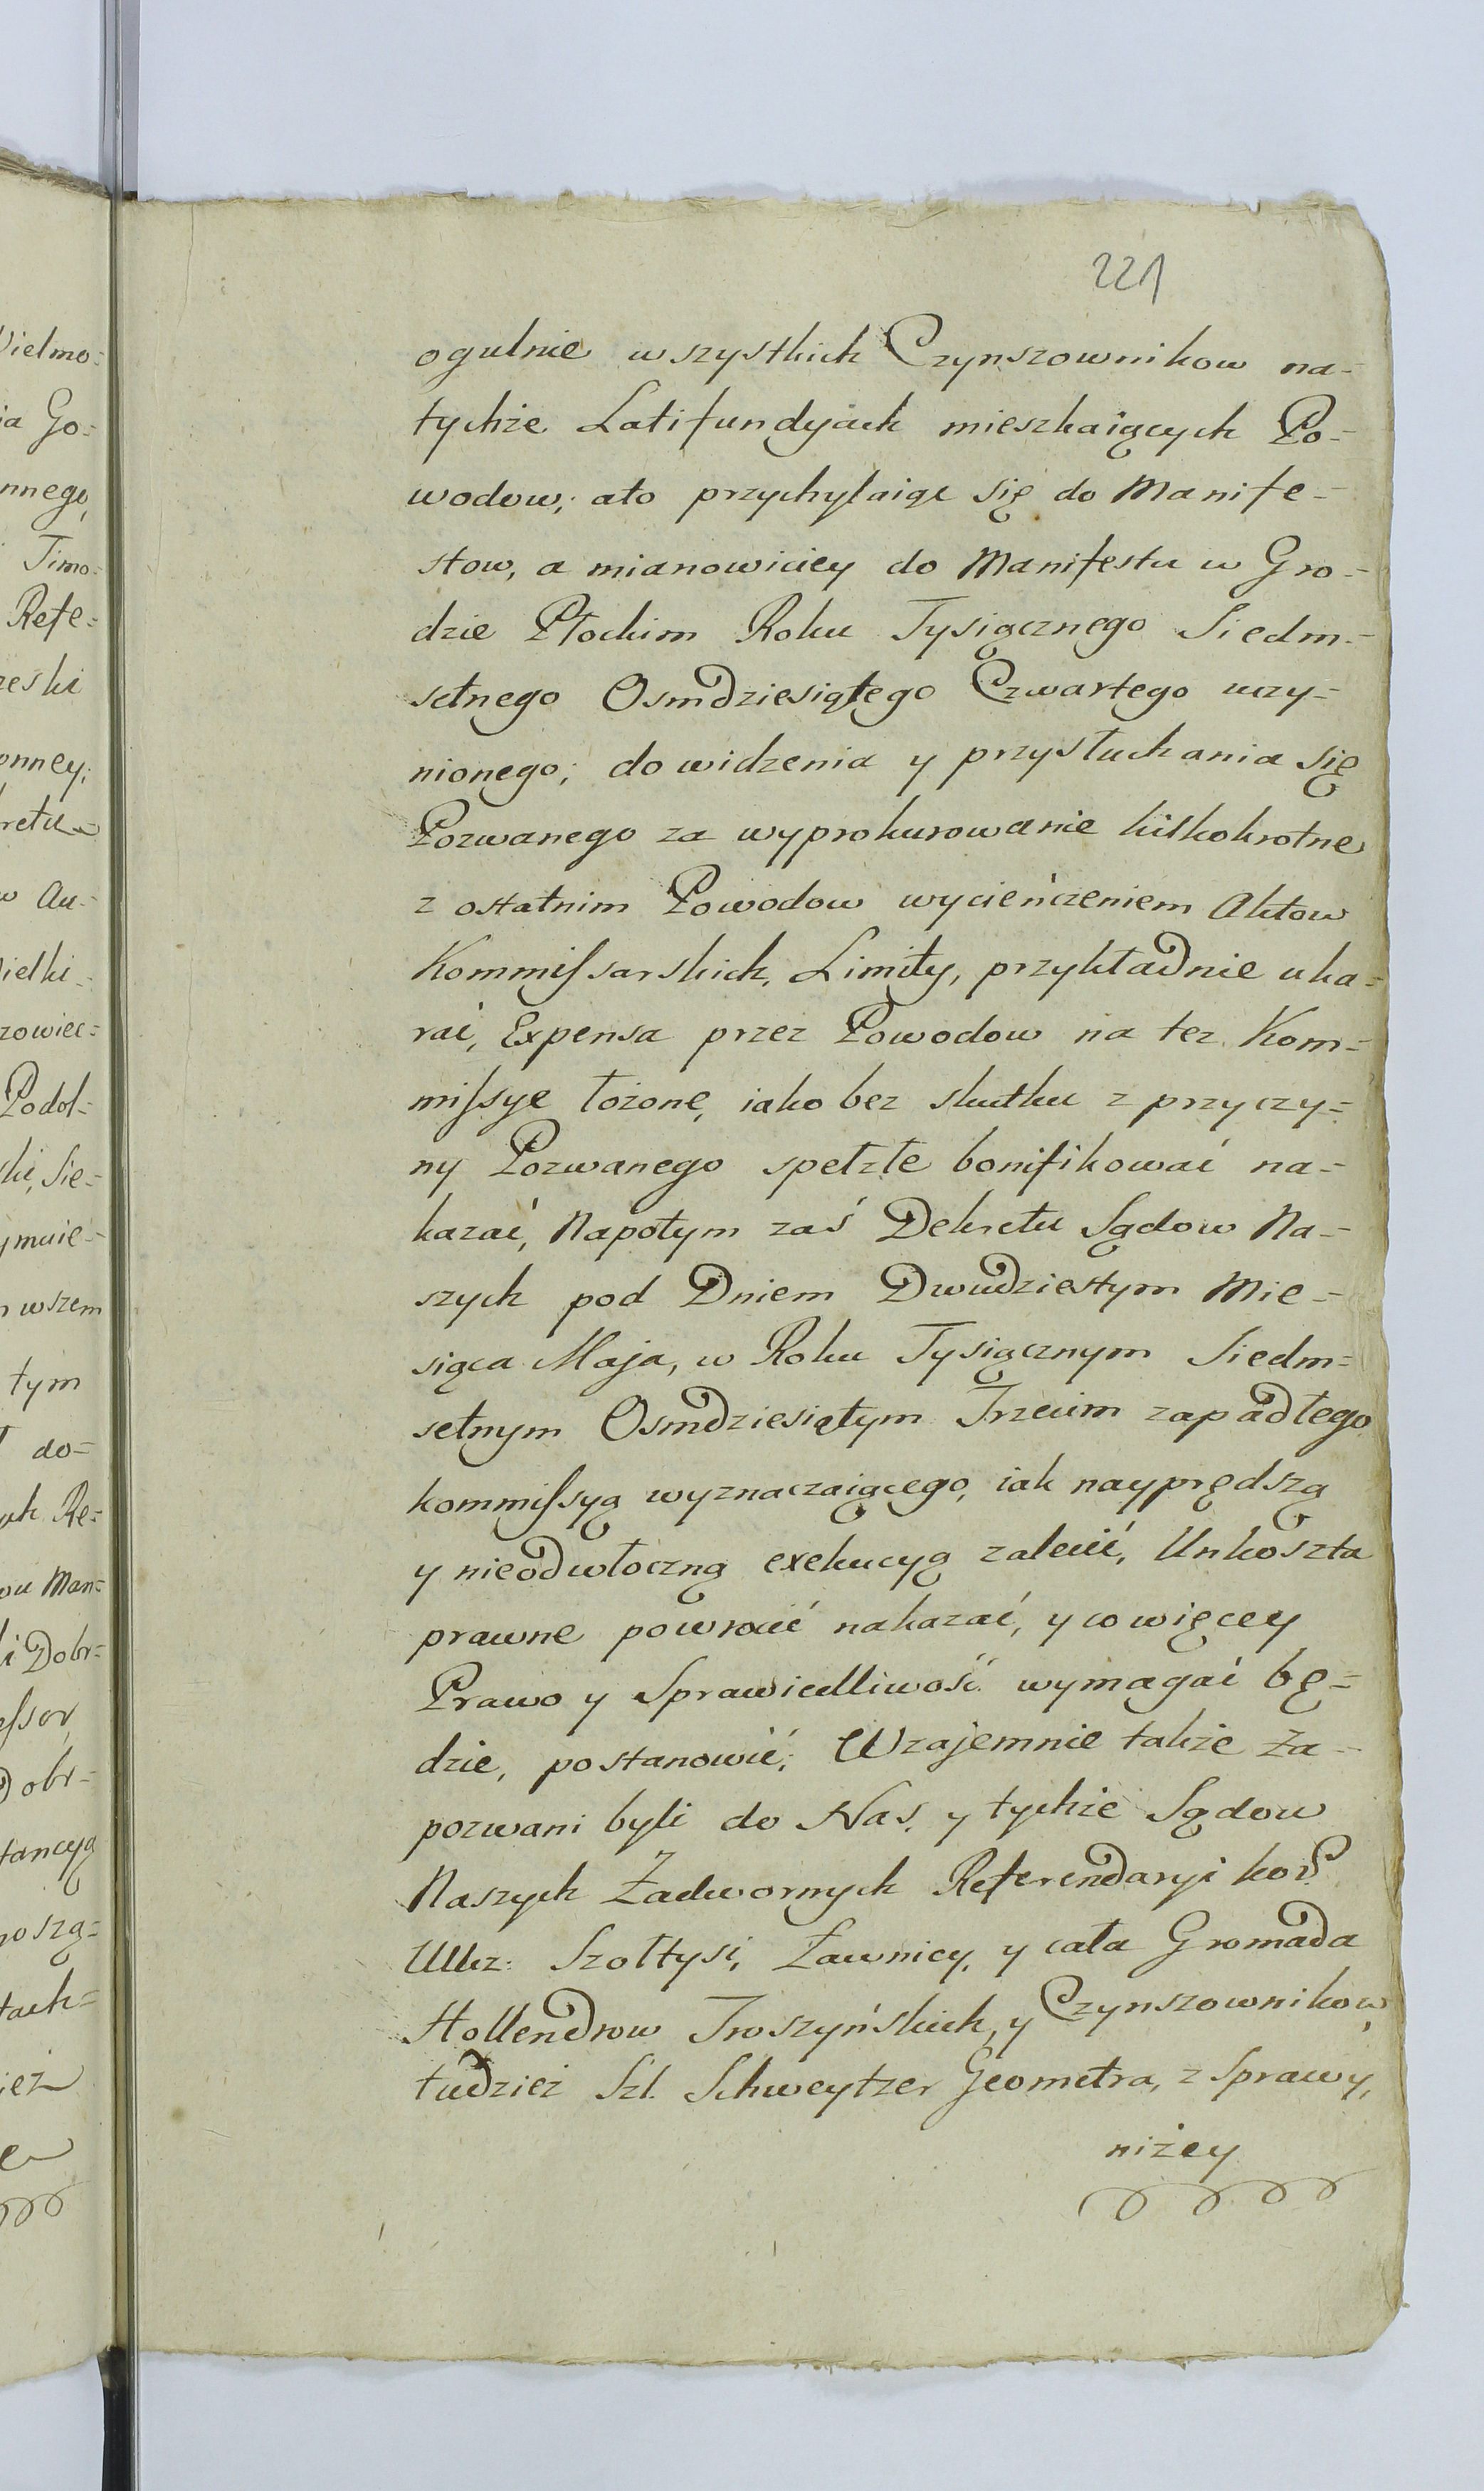 221
ogulnie wszystkich Czynszownikow na-
tychże Latifundyach mieszkaiących Po-
wodow; ato przychylaiąc się do Manife-
stow, a mianowiciey do Manifestu w Gro-
dzie Płockim Roku Tysiącznego Siedm-
setnego Osmdziesiątego Czwartego uczy-
nionego; do widzenia y przysłuchania się
Pozwanego za wyprokurowanie kilkokrotne
z ostatnim Powodow wycieńczeniem Aktow
Kommissarskich, Limity, przykładnie uka=
rać, Expensa przez Powodow na też Kom=
missye łożone, iako bez skutku z przyczy=
ny Pozwanego spełzłe bonifikować na-
kazać, Napotym zaś Dekretu Sądow Na-
szych pod Dniem Dwudziestym Mie-
siąca Maja, w Roku Tysiącznym Siedm=
setnym Osmdziesiątym Trzecim zapadłego
kommissyą wyznaczaiącego, iak nayprędszą
y nieodwłoczną exekucyą zalecić, Unkoszta
prawne powrócić nakazać, y co więcey
Prawo y Sprawiedliwość wymagać bę=
dzie, postanowić; Wzajemnie także Za-
pozwani byli do Nas, y tychże Sądow
Naszych Zadwornych Referendaryi kor.
Ucz: Szołtysi, Ławnicy, y cała Gromada
Hollendrow Troszyńskich, y Czynszownikow,
tudzież Szl. Schweytzer Geometra, z Sprawy,
niżey
Wielmo=
ia Go=
nnego,
Timo=
Refe=
reski
onney;
retu
w Au-
ielki-
zowiec=
Podol=
ki, Sie=
ymuie-
wszem
tym
do=
ch Re=
ou Man=
i Dobr=
essor,
Dobr-
tancyą
noszą=
tach=
ież